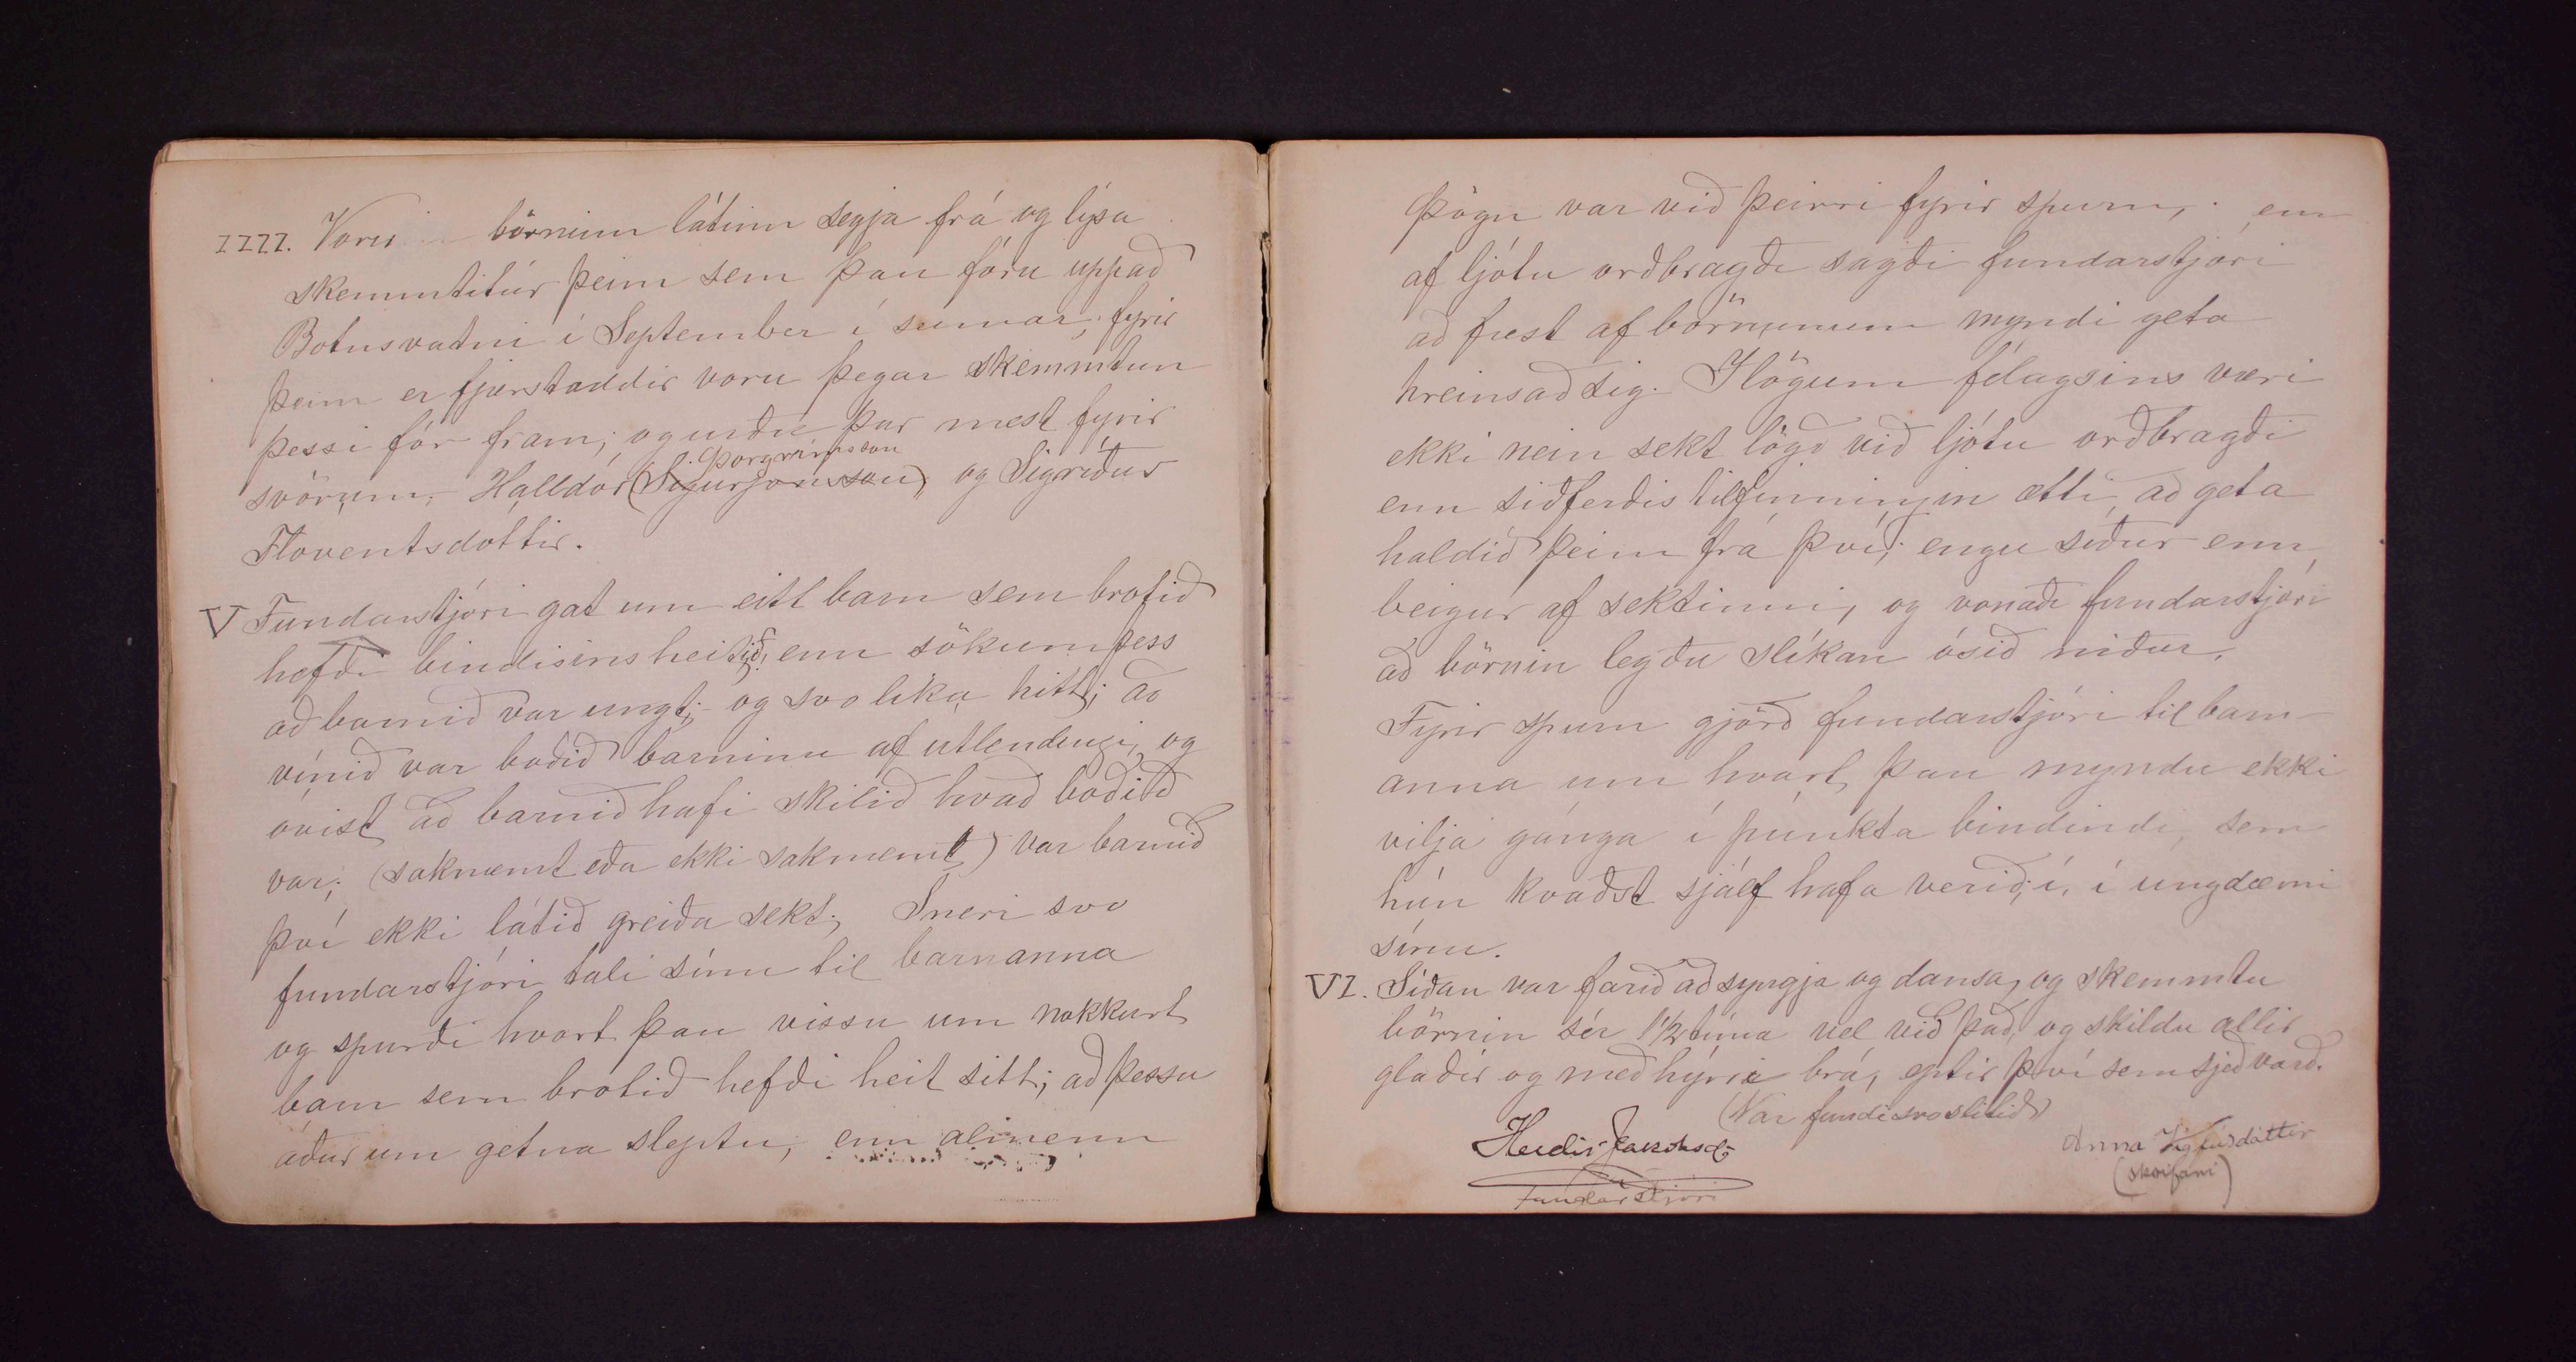 IIII. Voru börninn látinn segja frá og lýsa
skemmtitúr þeim sem þau fóru uppað
Botnsvatni í September í sumar, fyrir
þeim er fjærstaddir voru þegar skemmtun
þessi fór fram; og urðu þar mest fyrir
Þorgrímsson
svörum,- Halldór (Sigurjónsson) og Sigríður
Floventsdottir.
V Fundarstjóri gat um eitt barn sem brotið
hefði bindisinsheitið; enn sökum þess
að barnið var ungt; og svo lika hitt; að
vínið var boðið barninu af utlendingi, og
óvist að barnið hafi skilið hvað boðið
var; (saknæmt eða ekki saknæmt) var barnið
því ekki látið greiða sekt; Sneri svo
fundarstjóri tali sínu til barnanna
og spurði hvort þau vissu um nokkurt
barn sem brotið hefði heit sitt; að þessu
áður um getna sleptu; enn almenn
Þögn var við þeirri fyrir spurn, enn
af ljótu orðbragði sagði fundarstjóri
að fæst af börnunum myndi geta
hreinsað sig. Ílögum félagsins væri
ekki nein sekt lögð við ljótu orðbragði
enn siðferðis tilfinningin ætti að geta
haldið þeim frá því; engu síður enn
beigur af sektinni, og vonaði fundarstjóri
að börnin legðu slíkan ósið niður.
Fyrir spurn gjörð fundarstjóri til barn-
anna um hvort þau myndu ekki
vilja gánga í púnkta bindindi, sem
hún kvaðst sjálf hafa verið í, í ungdæmi
sínu.
VI. Síðan var farið að syngja og dansa, og skemmtu
börnin sér 1½ tíma vel við það, og skildu allir
glaðir og með hýrri brá, eptir því sem sjeð varð.
(Var fundi svo slitið)
Herdís Jakobsd.
Fundarstjóri
Anna Vigfúsdóttir
(skrifari)